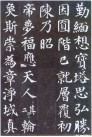 勤緬想寶塔思弘勝
因圓階已就層覆初
陳乃昭
帝夢福應天人輪
奐斯崇為章淨域真